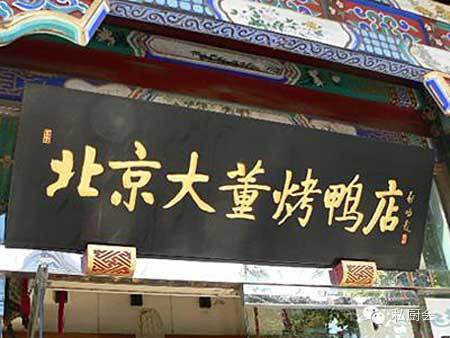 北京大董烤鸭店
私厨会